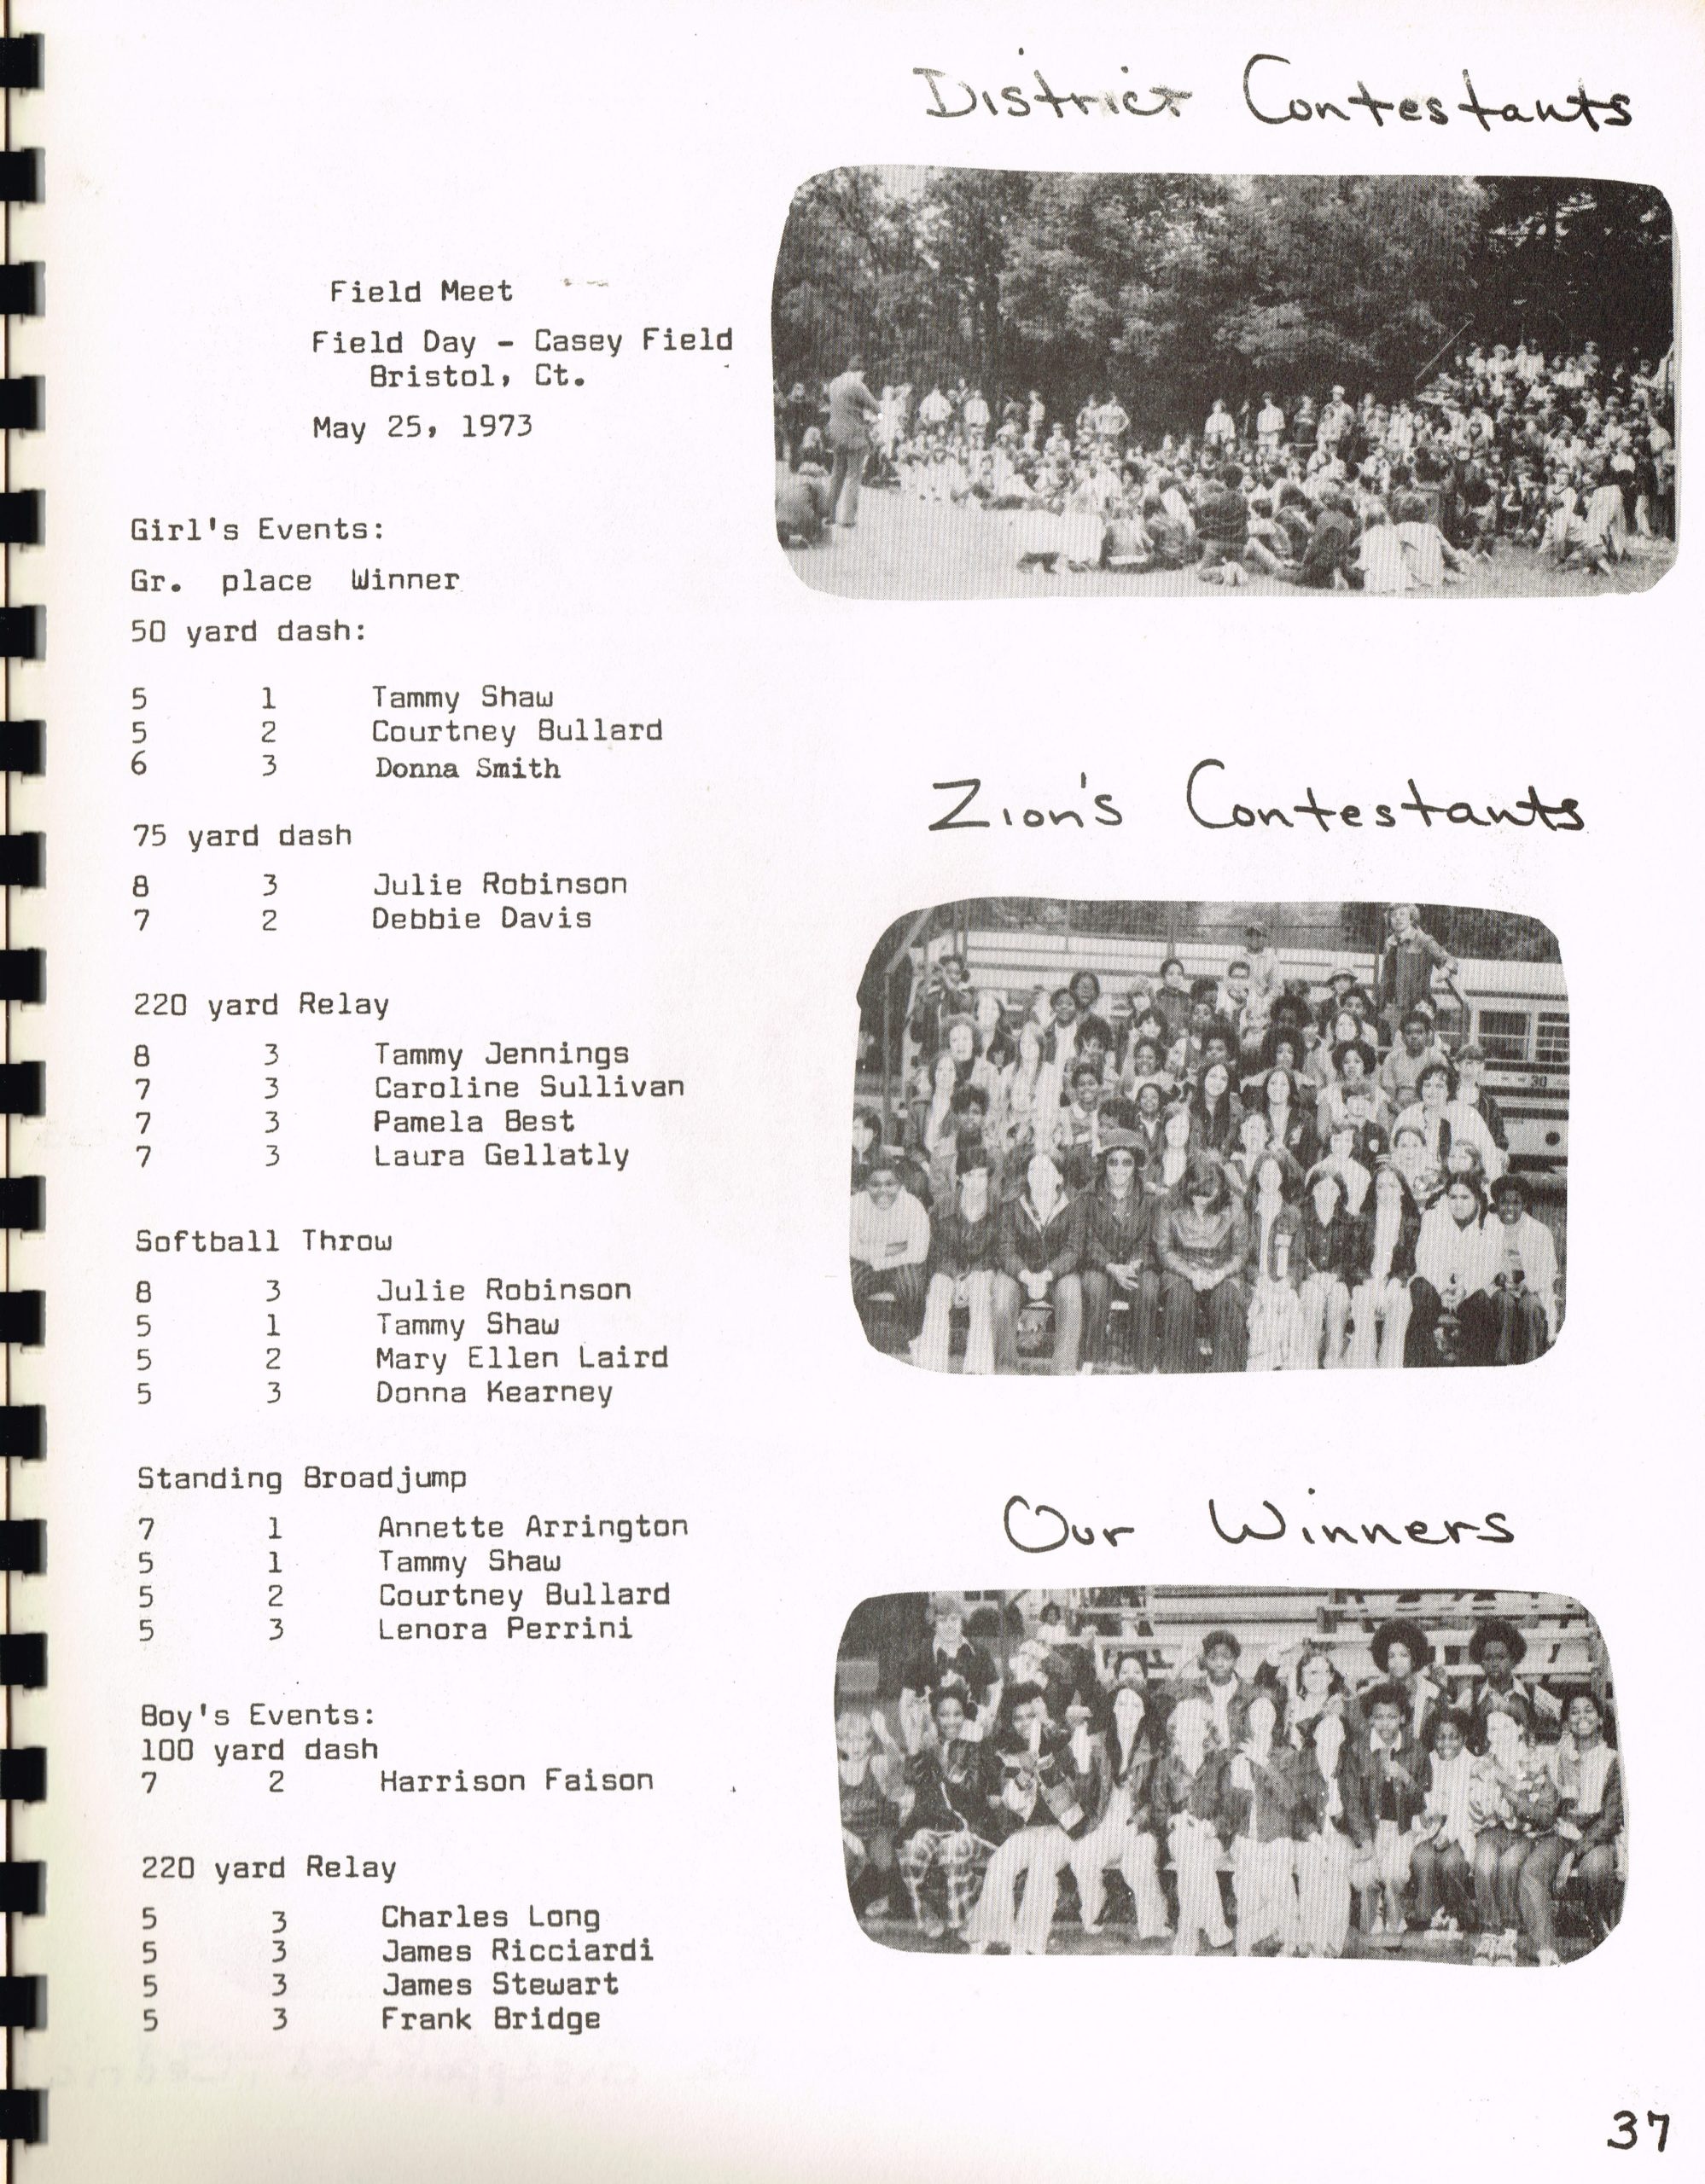 District Contestants
Field Meet
Field Day - Casey Field
Bristol, Ct.
May 25, 1973
Girl's Events:
Gr. place Winner
50 yard dash:
5 1 Tammy Shaw
5 2 Courtney Bullard
6 3 Donna Smith
75 yard dash
8 3 Julie Robinson
7 2 Debbie Davis
220 yard Relay
8 3 Tammy Jennings
7 3 Caroline Sullivan
7 3 Pamela Best
7 3 Laura Gellatly
Softball Throw
8 3 Julie Robinson
5 1 Tammy Shaw
5 2 Mary Ellen Laird
5 3 Donna Kearney
Standing Broadjump
7 1 Annette Arrington
5 1 Tammy Shaw
5 2 Courtney Bullard
5 3 Lenora Perrini
Boy's Events:
100 yard dash
7 2 Harrison Faison
220 yard Relay
5 3 Charles Long
5 3 James Ricciardi
5 3 James Stewart
5 3 Frank Bridge
Zion's Contestants
30
Our Winners
37